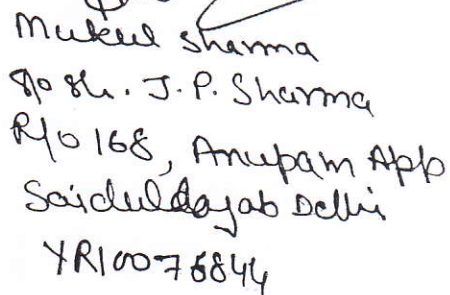 Mukul Sharma
S/o Sh. J.P. Sharma
R/o 168, Anupam App
Saidulalajab Delhi
YR10076844